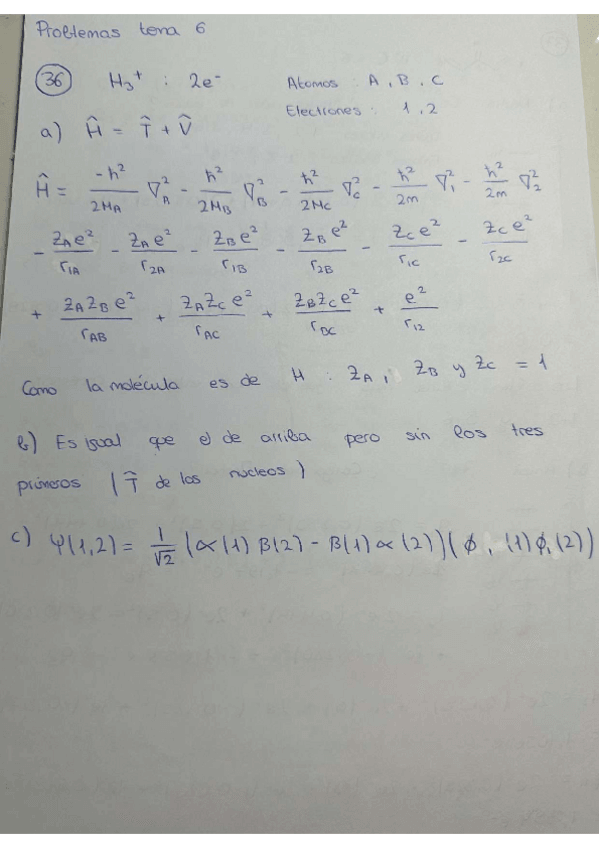 Problemas tema 6
36 H₃⁺ : 2e⁻ Atomos : A, B, C
Electrones : 1, 2
a) Ĥ = T̂ + V̂
Ĥ = -ħ²/2M_A ∇²_A - ħ²/2M_B ∇²_B - ħ²/2M_C ∇²_C - ħ²/2m ∇²₁ - ħ²/2m ∇²₂
- Z_A e²/r_1A - Z_A e²/r_2A - Z_B e²/r_1B - Z_B e²/r_2B - Z_C e²/r_1C - Z_C e²/r_2C
+ Z_A Z_B e²/r_AB + Z_A Z_C e²/r_AC + Z_B Z_C e²/r_BC + e²/r_12
Como la molécula es de H : Z_A, Z_B y Z_C = 1
b) Es igual que el de arriba pero sin los tres
primeros (T̂ de los núcleos)
c) Ψ(1,2) = 1/√2 (α(1) β(2) - β(1) α(2)) (φ, (1) φ, (2))